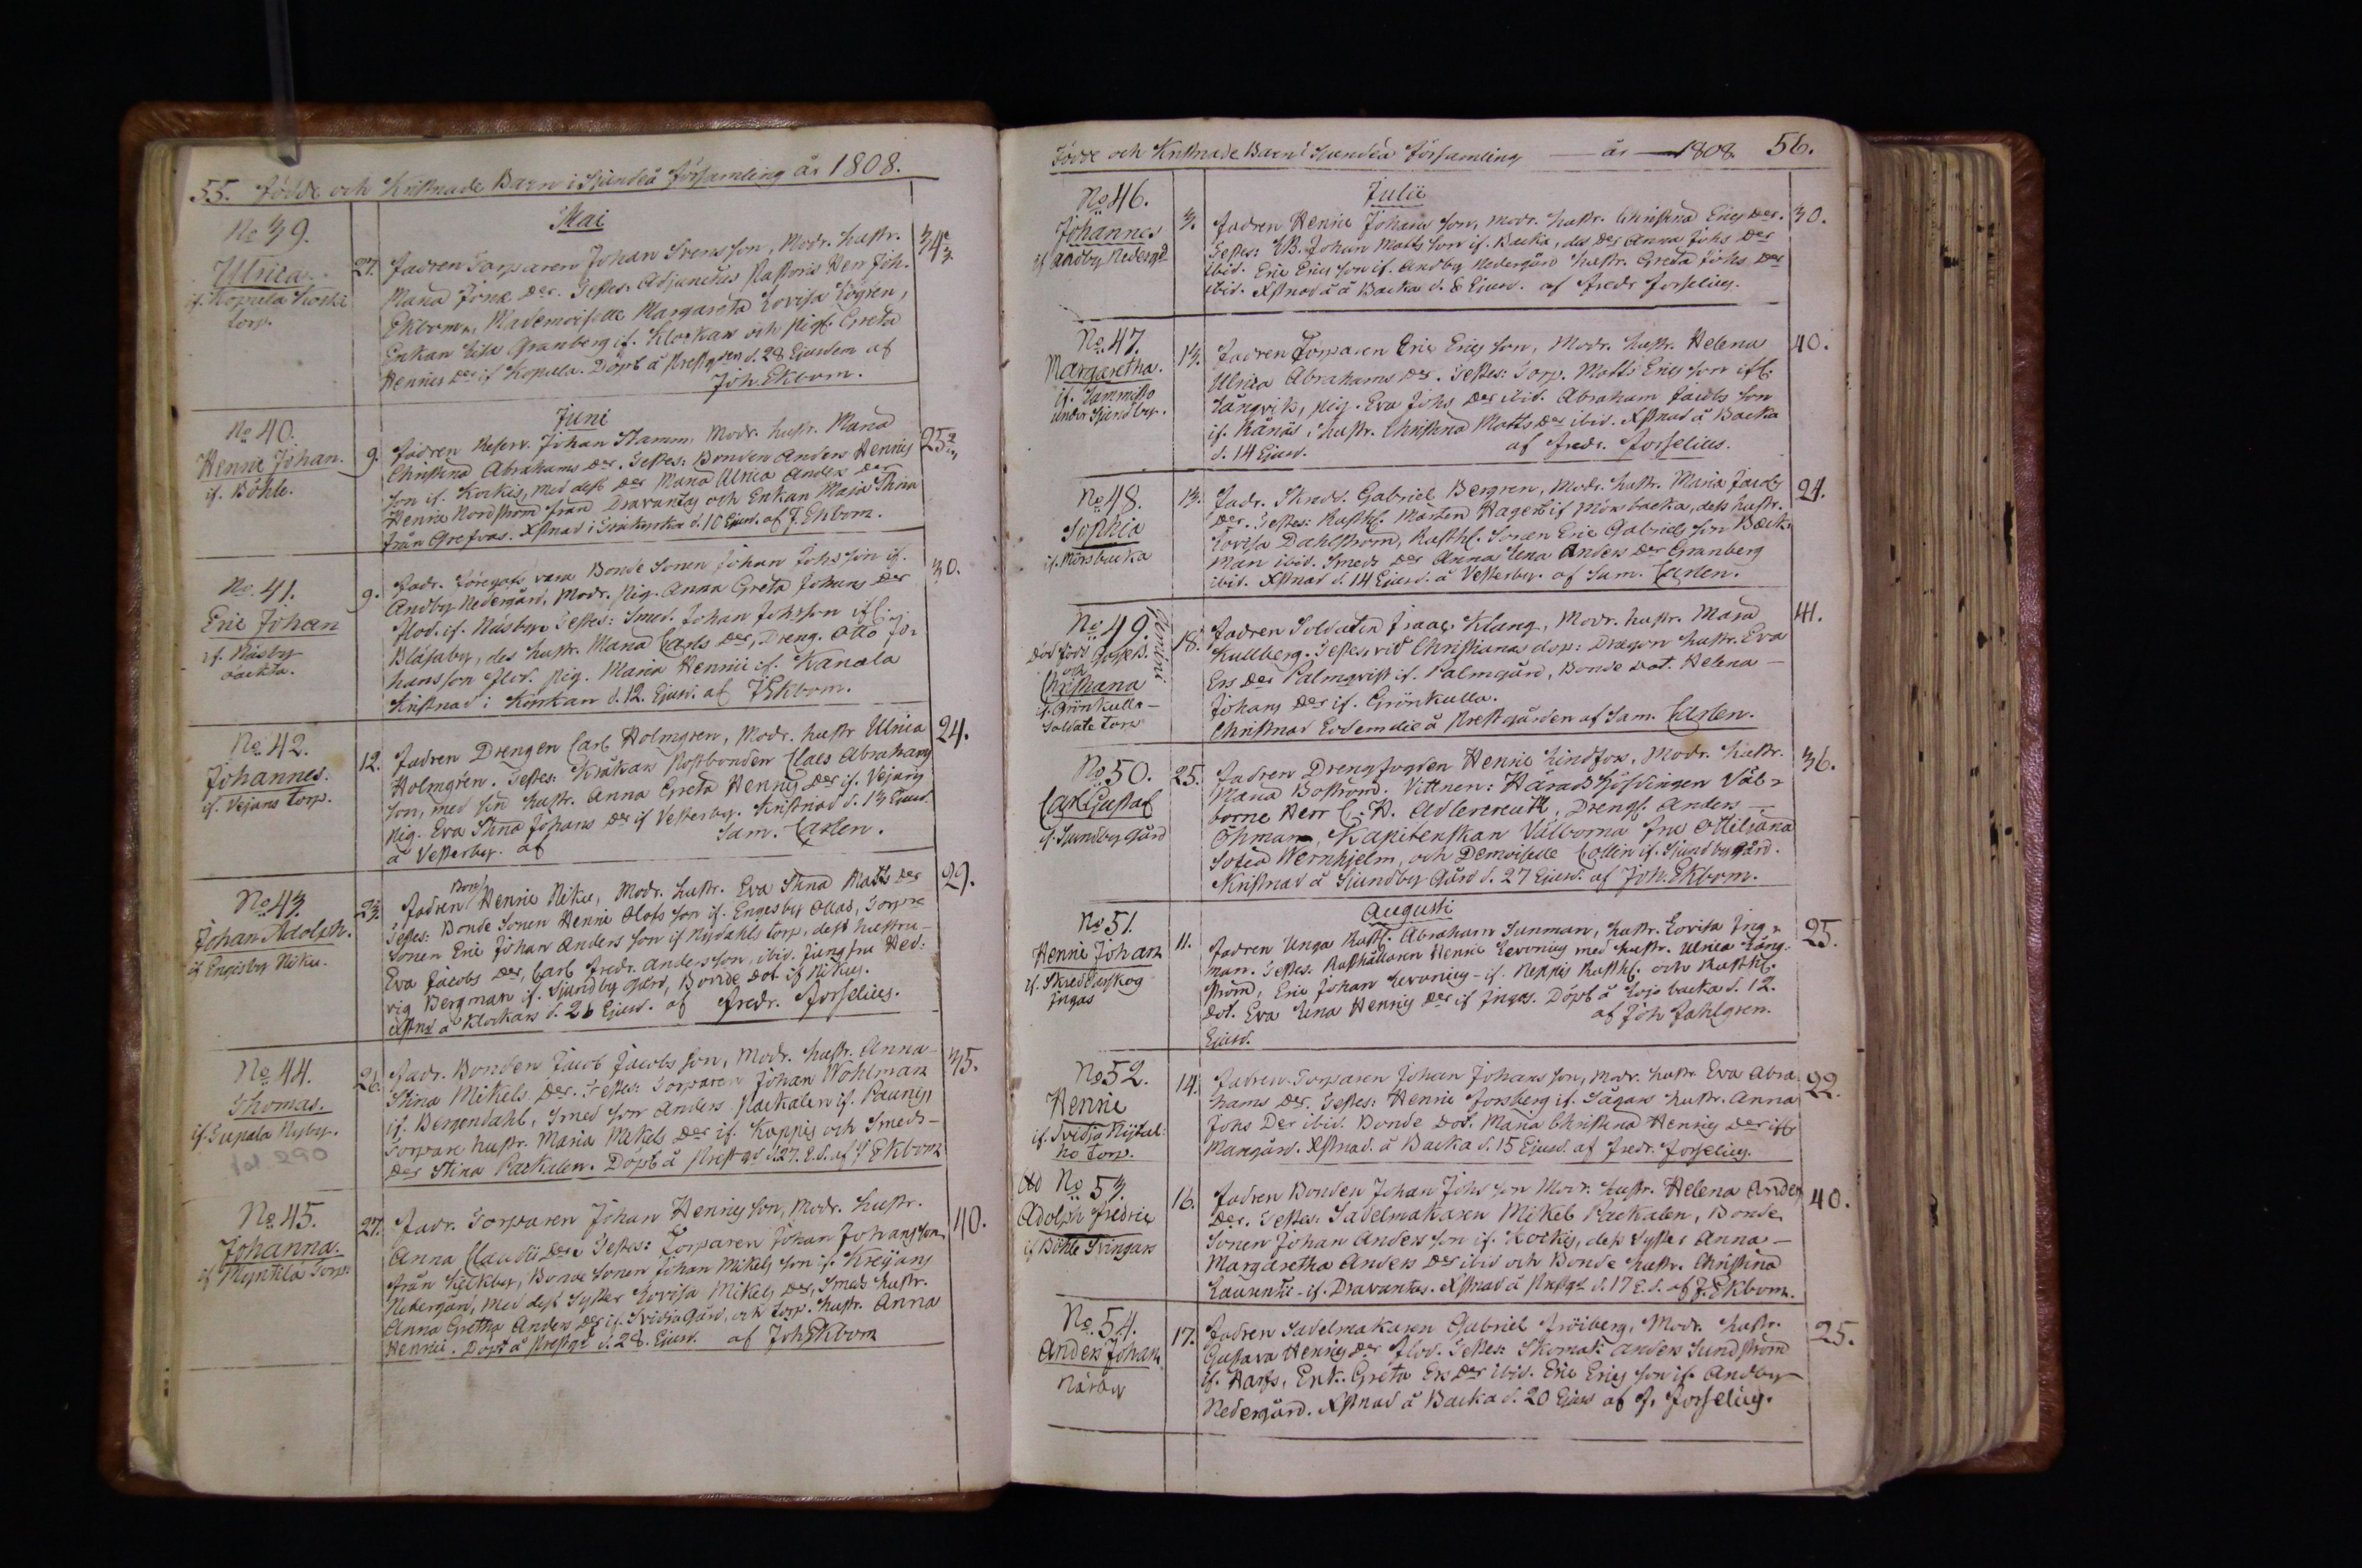 55. Födde och Kristnade Barn i Sjundeå Församling år 1808.
Mai
No 39.
Ulrica
if. Koppela Koski
torp.
27.
Fadren Torparen Johan Svensson, Modr. hustr.
Maria Jöns Der. Testes: Adjunctus Pastoris Herr Joh.
Ekbom, Mademoiselle Margareta Lovisa Lögren,
Enkan Lisa Granberg if. Klockars och pig. Greta
Henrics Der if Kopula. Döpt å Prestgden d. 28 Ejusdem af
Joh. Ekbom.
34
Juni
No 40.
Henric Johan.
if. Böhle.
9.
Fadren Reserv. Johan Stamm, Modr. hustr. Maria
Christina Abrahams Der. Testes: Bonden Anders Henrics
son if. Kockis, med dess Der Maria Ulrica Anders Der
Henric Nordström från Dravantby och Enkan Maja Stina
från Grefvas. Xstnad i d. 10 Ejusd. af J. Ekbom.
25
No 41.
Eric Johan
if. Näsby
backta.
9.
Fadr. föregafs vara Bonde Sonen Johan Johs son if.
Andby Nedergård, Modr. Pig. Anna Greta Johans Der
flod. if. Näsby. Testes: Smed. Johan Johsson if.
Blåsaby, des hustr. Maria Carls Der, Dreng. Otto Jo-
hansson flod. pig. Maria Henrici if. Kanala
Kristnad i Kyrkan d. 12. Ejusd. af J Ekbom.
30.
No 42.
Johannes.
if. Vejans torp.
12.
Fadren Drengen Carl Holmgren, Modr. hustr Ulrica
Holmgren. Testes: Kråkars Rostbonden Claes Abrahams
son, med sin hustr. Anna Greta Henrics Der if. Vejans
Pig. Eva Stina Johans Der if Vesterby. Kristnad d. 13 Ejusd.
å Vesterby. af Sam. Carlen.
24.
No 43.
Johan Adolph.
if Engisby Niku.
23.
Fadren Henric Niku, Modr. hustr. Eva Stina Matts Der
Testes: Bonde Sonen Henric Olofs son if. Engesby Ollas, Torpare
Sonen Eric Johan Anders son if Nydahls torp, dess hustru
Eva Jacobs Der, Carl Fredr. Andersson, ibid. Jungfru Hed-
vig Bergman if. Sjundby Gård, Bonde Dot if Nikus.
Xstnd å Klockars d. 26 Ejusd. af Fredr. Forselius.
29.
No 44.
Thomas.
if. Supala Nyby.
fol. 290
26.
Fadr. Bonden Jacob Jacobs son, Modr. hustr. Anna
Stina Mikels Der. Testes: Torparen Johan Wohlman
if. Bergendahl, Smed son Anders Packalen if. Paunis,
Torpare hustr. Maria Mikels Der if. Koppis och Smeds
Der Stina Packalen. Döpt å Prestgd d. 27. E.d. af J Ekbom
35.
No 45.
Johanna.
if Myntilä Torp.
27.
Fadr. Torparen Johan Henrics son, Modr. hustr.
Anna Claudii Der. Testes: Torparen Johan Johansson
från Käckby, Bonde Sonen Johan Mikels son if. Krejans
Nedergård, med dess Syster Lovisa Mikels Der, Smeds hustr.
Anna Gretha Anders Der if. Svidja Gård, och torp. hustr. Anna
Henrici. Döpt å Prestgd d. 28. Ejusd. af Joh Ekbom
40.
Födde och Kristnade Barn i Sjundeå Församling år 1808. 56.
Julii
No 46.
Johannes
if Andby Nedergd
3.
Fadren Henric Johans son, Modr. hustr. Christina Erics Der.
Testes: Johan Matts son if. Backa, des Der Anna Johs Der
ibid. Eric Erics son if. Andby Nedergård hustr. Greta Johs Der
ibid. Xstnad å Backa d. 8 Ejusd. af Fredr Forselius.
30.
No 47.
Margaretha.
if. Tammisto
under Sjundby.
13.
Fadren Torparen Eric Erics son, Modr. hustr. Helena
Ulrica Abrahams Der. Testes: Torp. Matts Erics son if.
Långvik, pig. Eva Johs Der ibid. Abraham Jacobs son
if. Rånäs, hustr. Christina Matts Der ibid. Xstnad å Backa
d. 14 Ejusd. af Fredr. Forselius.
40.
No 48.
Sophia
if. Mörsbacka
13.
Fadr. Skrädd. Gabriel Bergren, Modr. hustr. Maria Jacobs
Der. Testes: Rusth. Mårten Hagert if Mörsbacka, dess hustr.
Lovisa Dahlström, Rusth. Sonen Eric Gabriels son Bäck-
man ibid. Smeds Der Anna Lena Anders Der Granberg
ibid. Xstnad d. 14 Ejusd. å Vesterby. af Sam. Carlen.
24.
No 49.
Gemini
Död född Gosse B.
och
Christiana
if. Grönkulla
Soldate torp
18.
Fadren Soldaten Isaac Klang, Modr. hustr. Maria
Kullberg. Testes, vid Christianas dop: Dragon hustr. Eva
Ers Der Palmqvist if. Palmgård, Bonde Dot. Helena
Johans Der if. Grönkulla.
Christnad Eodem die å Prestgården af Sam. Carlen.
41.
No 50.
Carl Gustaf
if. Sjundby Gård
25.
Fadren Drengfogden Henric Lindfors, Modr. hustr.
Maria Boström. Vittnen: Häradshöfdingen Väl-
borne Herr C. H. Adlercreutz, Drengf. Anders
Öhman, Kapitenskan Välborna fru Ottiliana
Sofia Wernhjelm, och Demoiselle Collin if. Sjundby gård.
Kristnad å Sjundby Gård d. 27 Ejusd. af Joh. Ekbom.
36.
Augusti
No 51.
Henric Johan
if. Skredarskog
Ingas
11.
Fadren Unga Rusth. Abraham Sunman, hustr. Lovisa Ing-
man. Testes: Rusthållaren Henric Levonius med hustr. Ulrica Lång-
ström, Eric Johan Levonius if. Reppis Rusth. och Rusth.
dot. Eva Lena Henrics Der if Ingas. Döpt å Lojo backa d. 12.
Ejusd. af Joh Fahlgren.
25.
No 52.
Henric
if. Svidja Nijtal-
ho torp.
14.
Fadren Torparen Johan Johans son, Modr. hustr Eva Abra-
hams Der. Testes: Henric Forsberg if. Sågars hustr. Anna
Johs Der ibid. Bonde Dot. Maria Christina Henrics Der if
Mangård. Xstnad. å Backa d. 15 Ejusd. af Fredr. Forselius.
22.
No 53.
Adolph Fredric
if Böhle Svingars
16.
Fadren Bonden Johan Johs son Modr. hustr. Helena Anders
Der. Testes: Sadelmakaren Mikel Packalen, Bonde
Sonen Johan Anders son if. Kockis, dess Syster Anna
Margaretha Anders Der ibid och Bonde hustr. Christina
Laurentii if. Dravantas. Xstnad å Prestgd d. 17 E.d. af J. Ekbom.
40.
No 54.
Anders Johan
Närby
17.
Fadren Sadelmakaren Gabriel Fröiberg, Modr. hustr.
Gustava Henrics Der flod. Testes: Skomak. Anders Sundström
if. Harfs, Enk. Greta Ers Der ibid. Eric Erics son if. Andby
Nedergård. Xstnad å Backa d. 20 Ejusd af F. Forselius.
25.